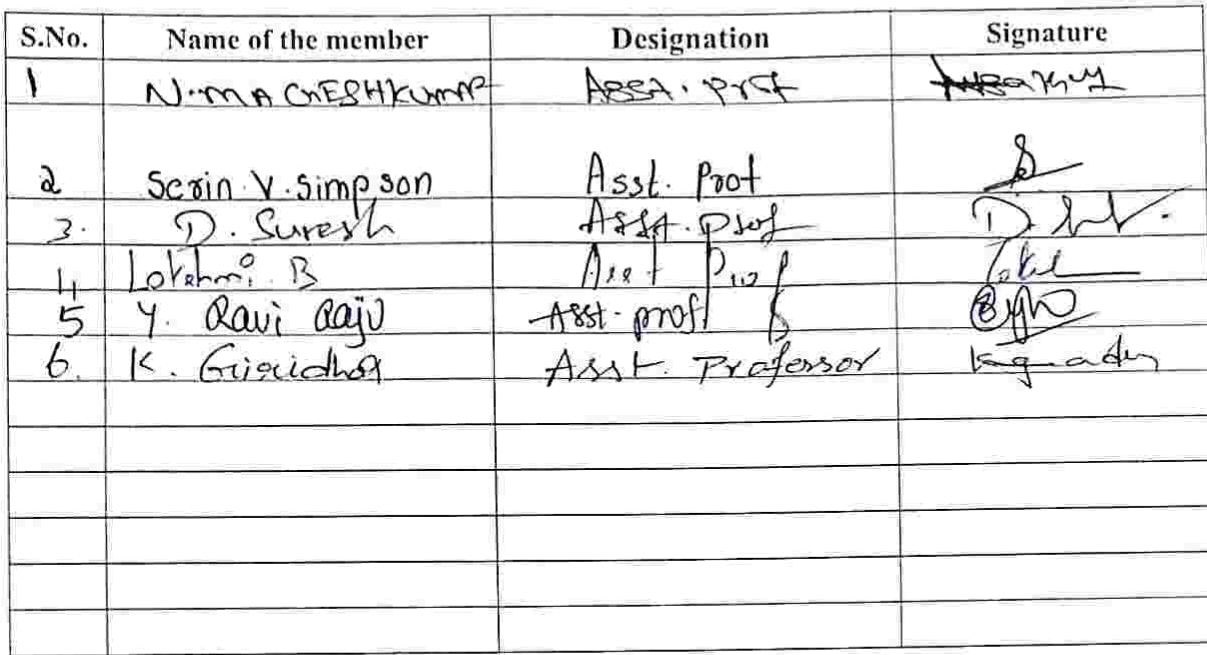 S.No. Name of the member Designation Signature
1 N. MAGESHKUMAR Asst. Prof
2 Serin V. Simpson Asst. Prof
3. D. Suresh Asst. Prof
4 B Asst Prof
5 Y. Ravi Raju Asst. prof
6. K. Giridhar Asst. Professor